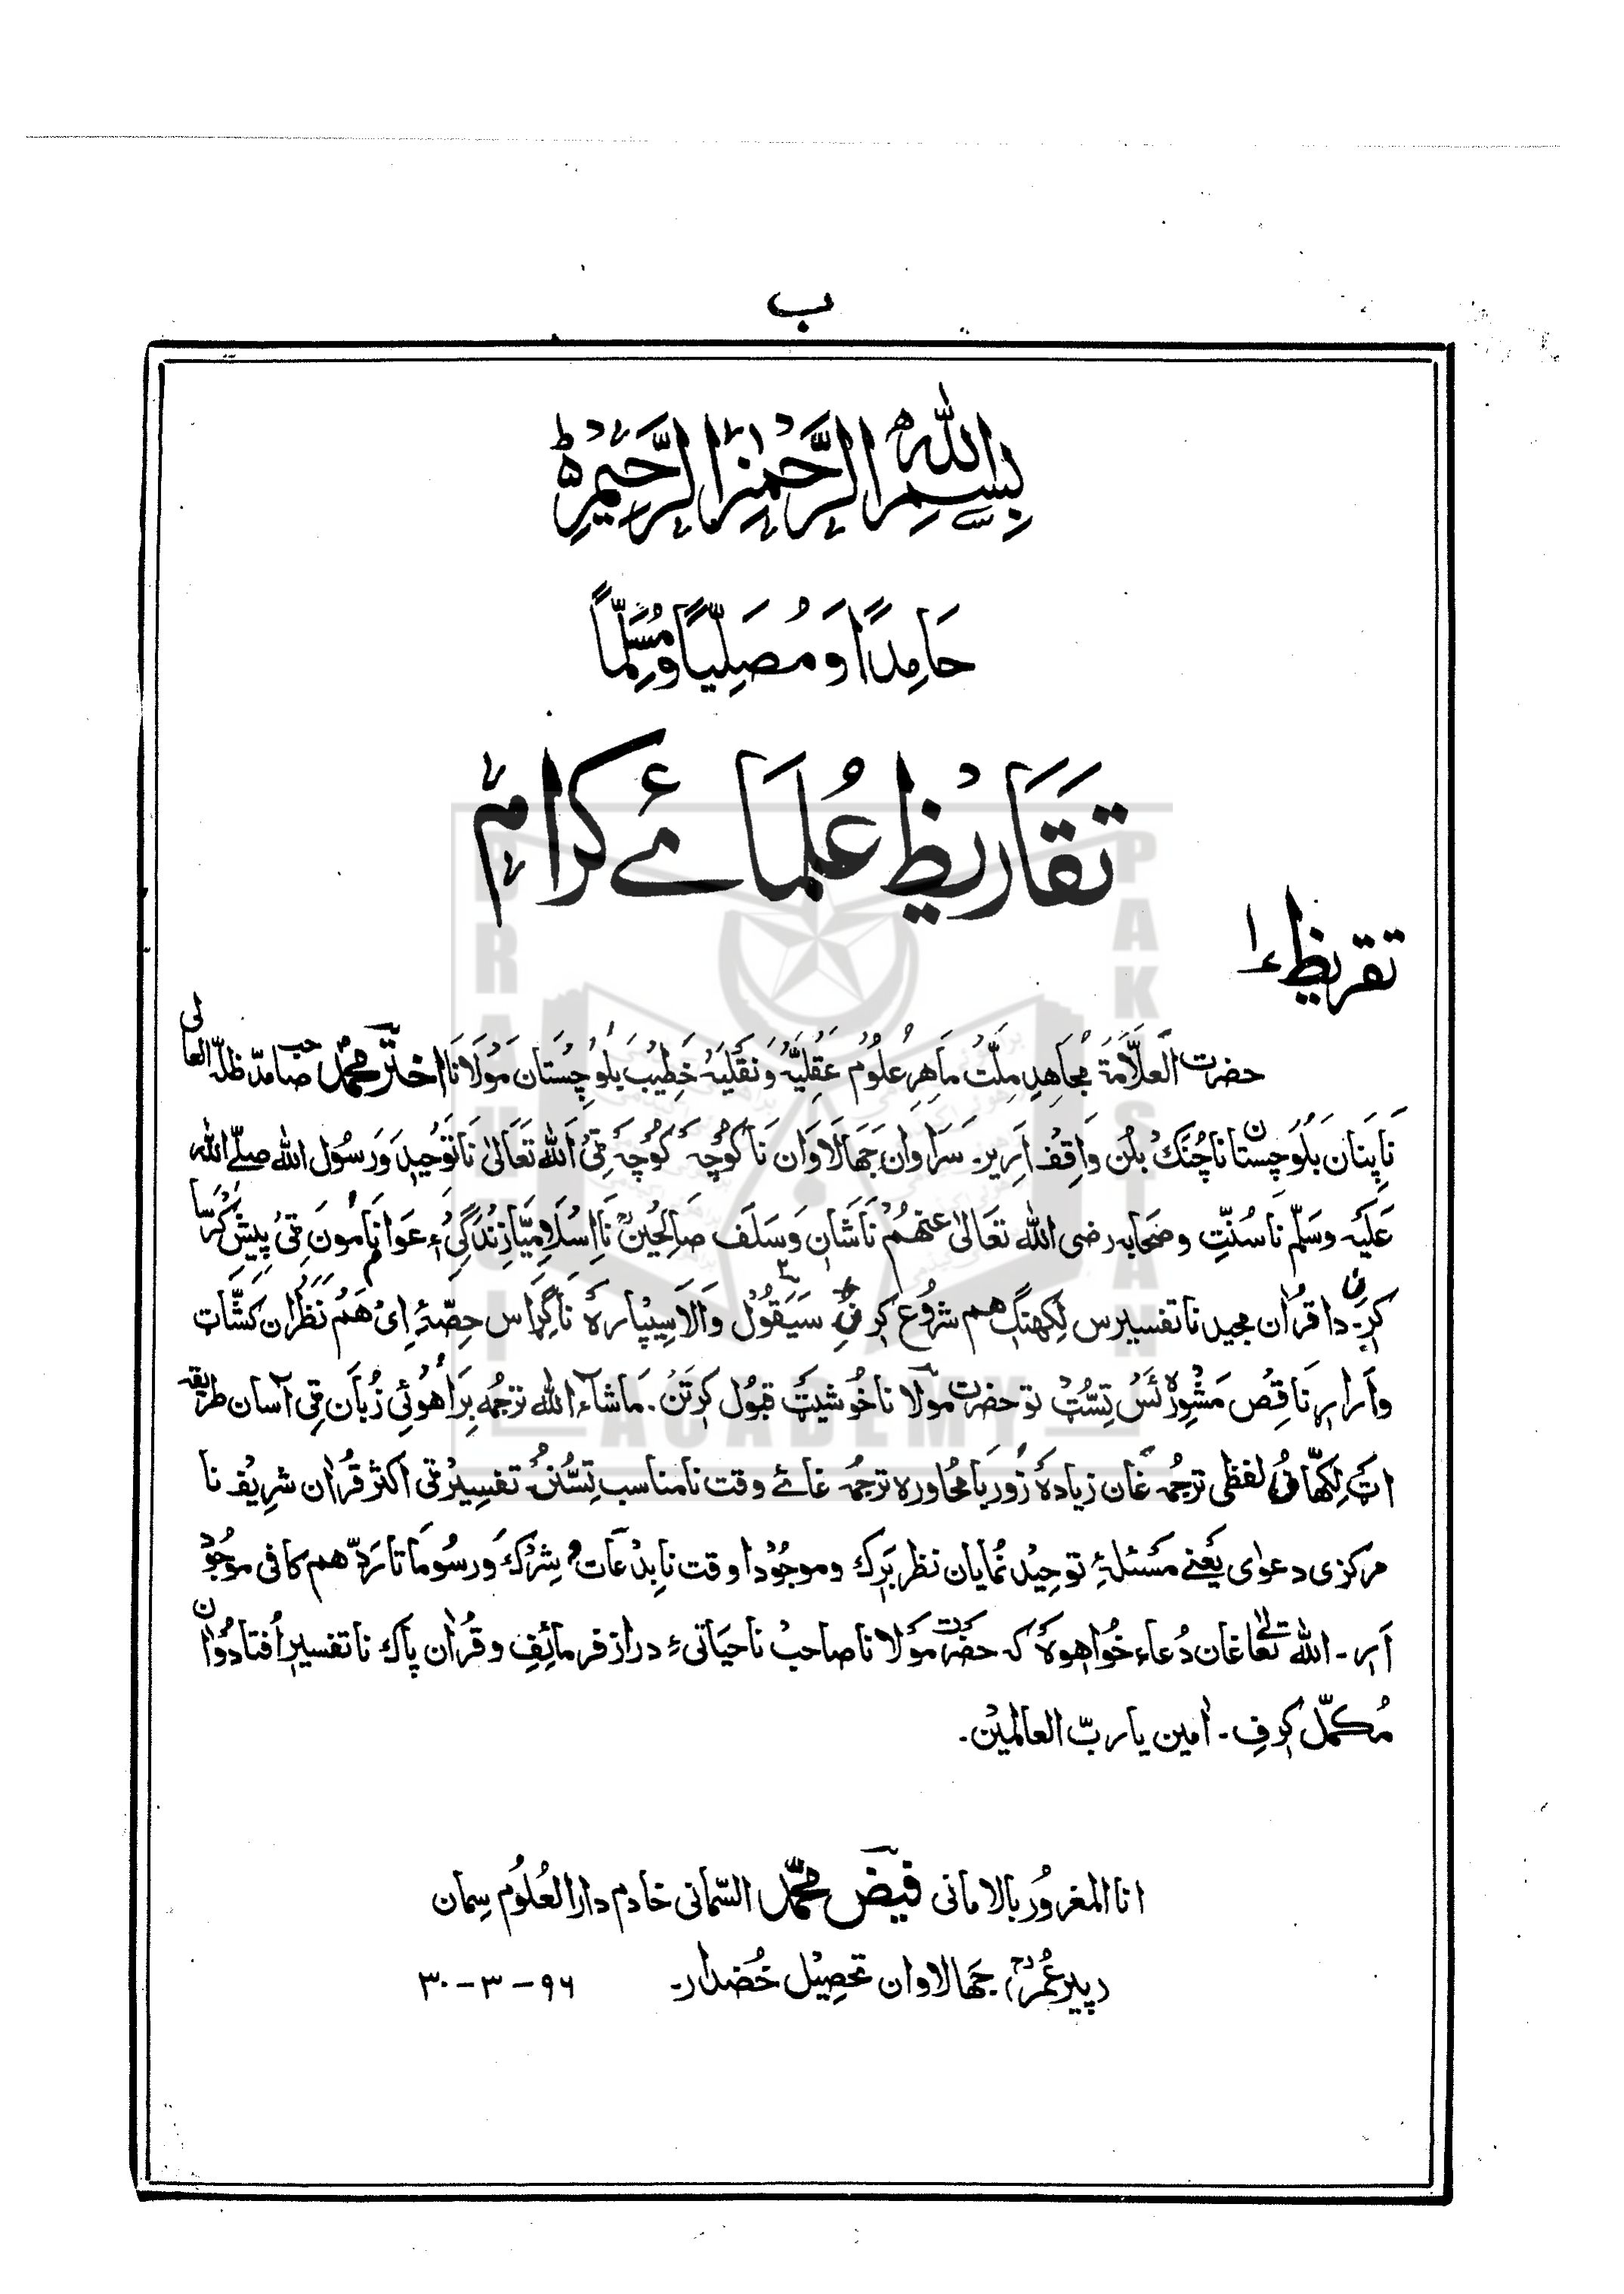 ب
بِسْمِ اللّٰهِ الرَّحْمٰنِ الرَّحِيْمِ ط
حَامِدًا وَ مُصَلِّيًا وَّمُسَلِّمًا
تَقَارِيْظ عُلَمَائے کرام
تقریظ ١
حضرت العَلّامَة مُجاهِدِ مِلّتْ مَاهِرِ عُلُوْم عَقْلِيَّهْ وَ نَقْلِيَهْ خَطِيْبَ بَلُوْچِسْتَان مَوْلَانَا اختر محمّد صاحب مدّ ظلّہ العالی
نَا پِنَان بَلُوچِستان نا چُنَک بلُن وَاقِف اَرِیر۔ سَرَاوان جَهَالَاوَان نَا کُوْچَه کُوْچَه ٹِیْ اَللّٰه تَعَالیٰ نَا تَوْحِید وَ رَسُول الله صلّے الله
عَلَیه وسَلّم نَا سُنّتِ و صَحابہ رضی الله تَعَالیٰ عنهُمْ نَا شَان وَ سَلَف صَالِحِیْنؒ نَا اِسْلَامِیّا زِنْدَگِیْءِ عَوَا نَا مُون ٹِیْ پِیش کَرسَا
کرِن۔ دا قرُاٰن مجید نا تفسیر س لِکھنِگ هم شرُوع کرِنُ سَیَقُوْلُ وَالَا سِیْپارہ نَا گِرَاس حِصّہءِ اِیْ هَمْ نَظَران کَشّات
وَ اَرَا رِ نَاقِص مَشْوَرَہ ئَسْ تِسُّٹْ تو حضرت مَولانا خُوشِیَٹ قبُول کرتَن۔ مَاشاءَ الله ترجُمه بَرَاهُوئِی زُبَان ٹِی آسان طریقه
اٹ لِکھّانُ لفظی ترجُمہ غَان زیادہ زور بَا مُحاورہ ترجمہ غائے وقت نا مناسب تِسُّنُ۔ تفسِیرْ ٹی اکثر قُراٰن شرِیف نا
مرکزی دعوٰی یَعْنے مَسْئلہءِ توحِیْد نُمایان نظر بَرِک و موجُوْدا وقت نا بِدْعَات و شِرْک وَ رسُومَاتا رَدّ هم کافی موجُوْد
اَرِ۔ الله تعَالیٰ غان دُعاء خُواهوہ که حضرت مَولانا صاحبْ نا حیَاتیءِ دراز فرمائِفِ و قرُاٰن پاک نا تفسیرِ اُفتا دُوْاٰن
مُکمّل کرفِ۔ اٰمین یا ربّ العالَمِیْن۔
انا المغرور بالامانی فیض محمّد السّمانی خادم دار العُلُوم سِمان
(پیر عُمرؒ) جهالاوان تحصِیْل خُضدار۔ ٩٦ – ٣ – ٣٠
BRAHUI
ACADEMY
PAKISTAN